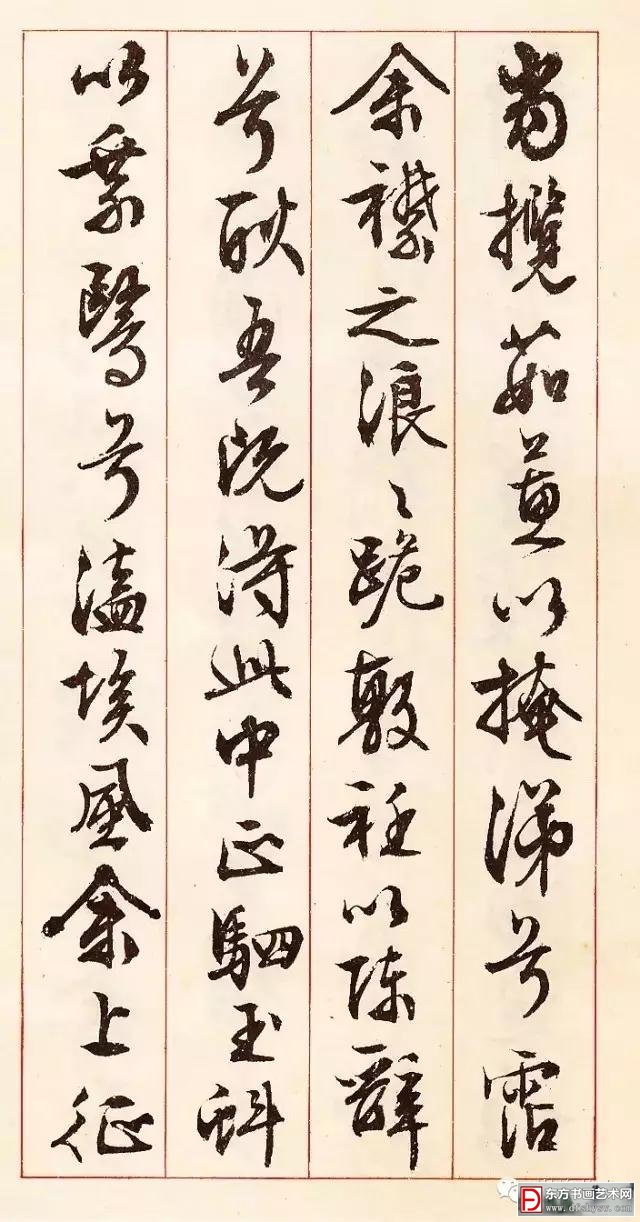 当揽茹蕙以掩涕兮霑
余襟之浪〻跪敷衽以陈辞
兮耿吾既得此中正駟玉虬
以乘鹥兮溘埃風余上征
东方书画艺术网
www.dfshyw.com